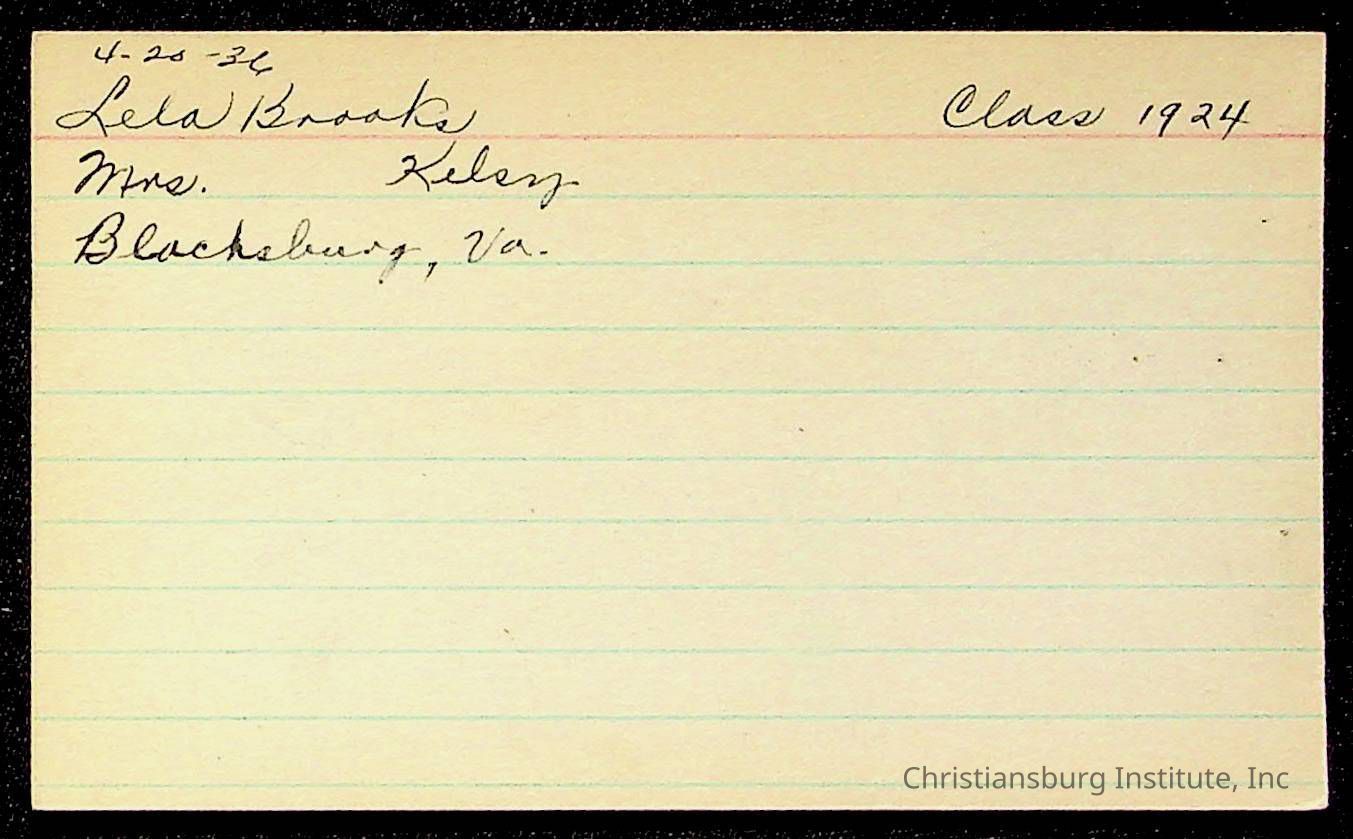 4-20-36
Lela Brooks Class 1924
Mrs. Kelsy
Blacksburg, Va.
Christiansburg Institute, Inc